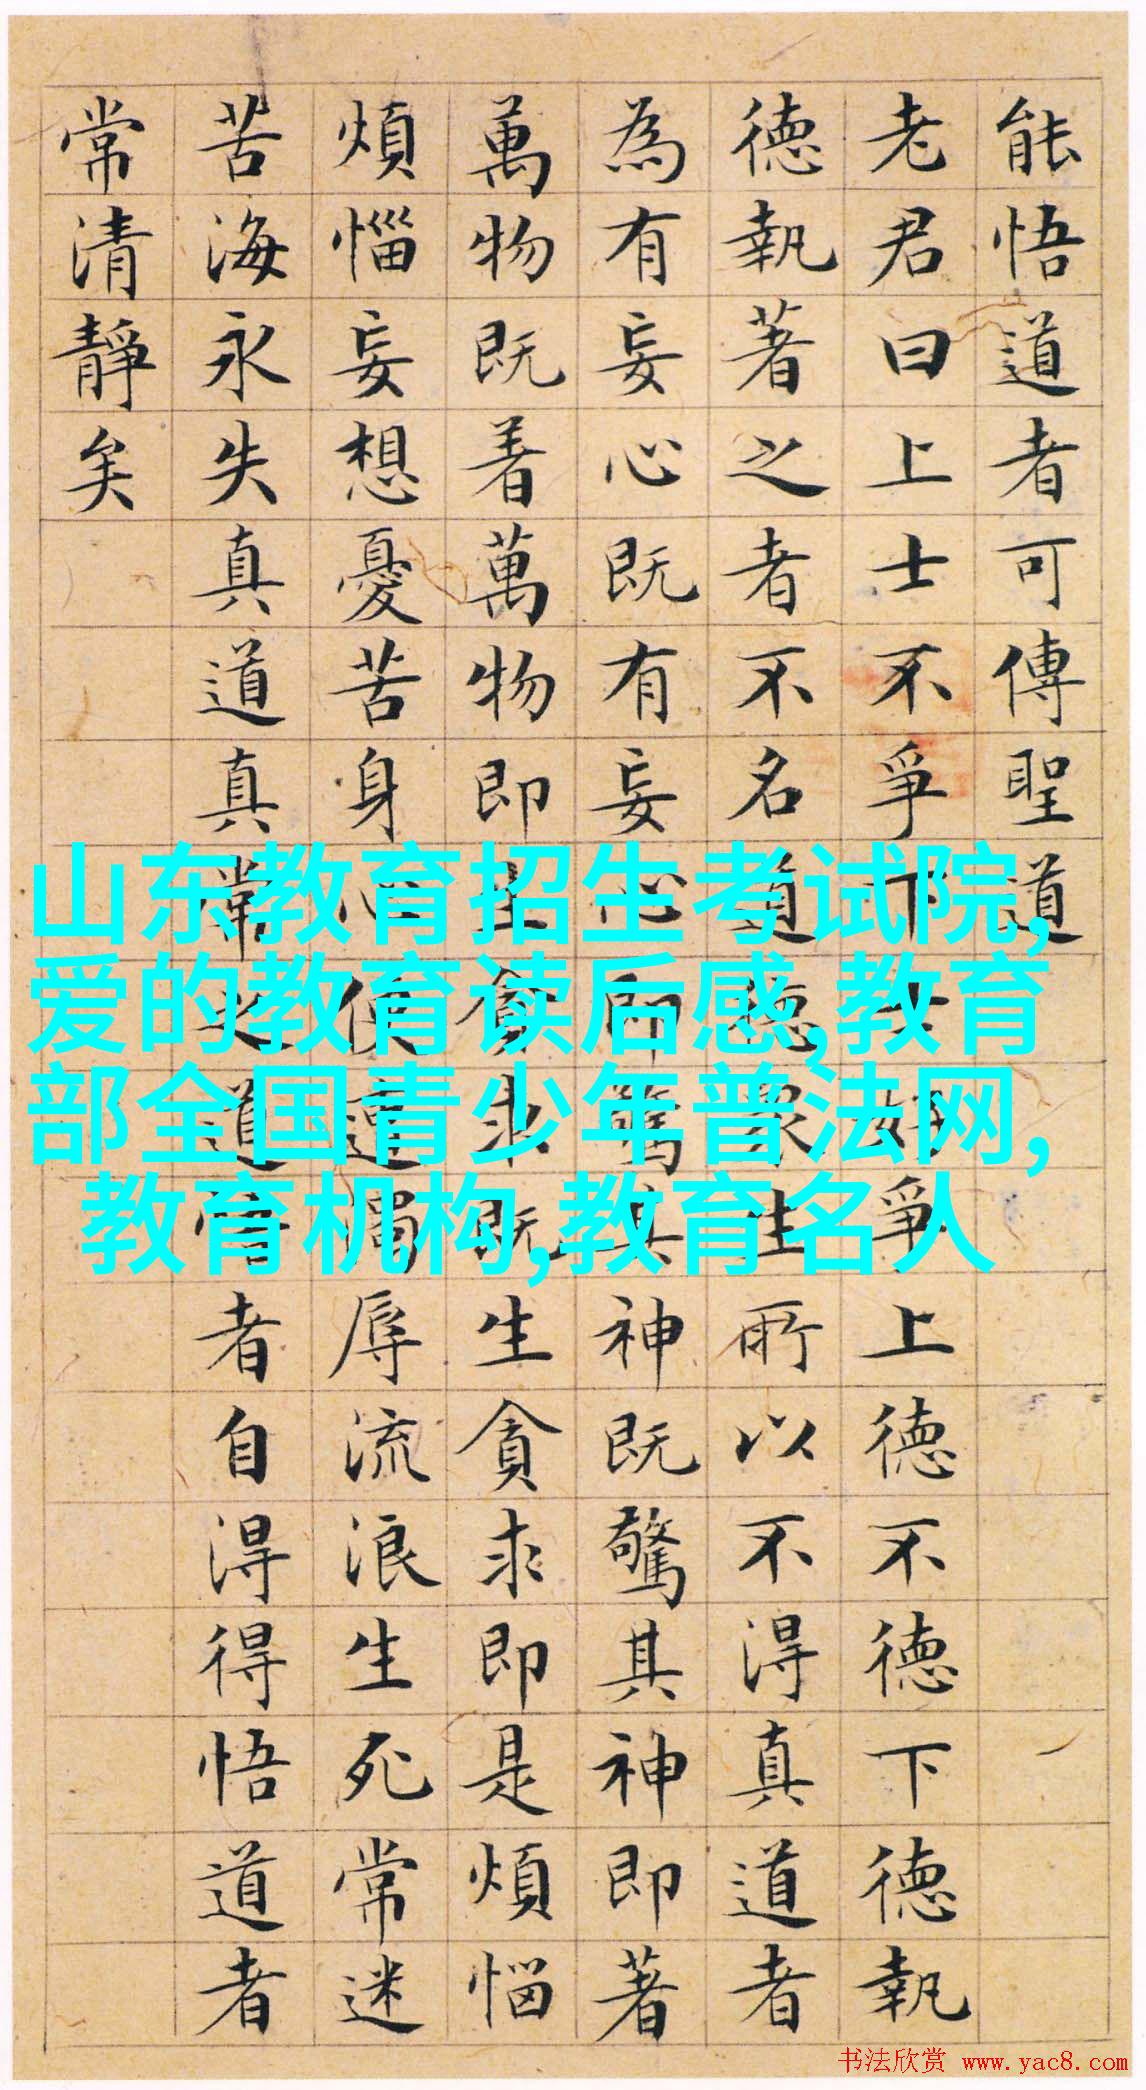 能悟道者可傳聖道
老君曰上士不爭下士好爭上徳不徳下徳執
徳執著之者不名道徳眾生所以不得真道者
為有妄心既有妄心即驚其神既驚其神即著
萬物既着萬物即生貪求既生貪求即是煩惱
煩惱妄想憂苦身心便遭濁辱流浪生死常迷
苦海永失真道真常之道者自得得悟道者
常清靜矣
山东教育招生考试院,
爱的教育读后感,教育
部全国青少年普法网,
教育机构,教育名人
书法欣赏 www.yac8.com